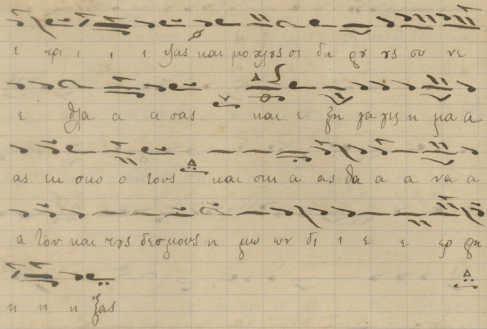 ε τρι ι ι ι ψας και μοχλους σι δη ρου ους συ νε
ε θλα α α σας και ε ξη γα γες η μα α
ας εκ σκο ο τους και σκι α ας θα α α να α
α του και τους δεσμους η μω ων δι ι ε ε ερ ρη
η η η ξας